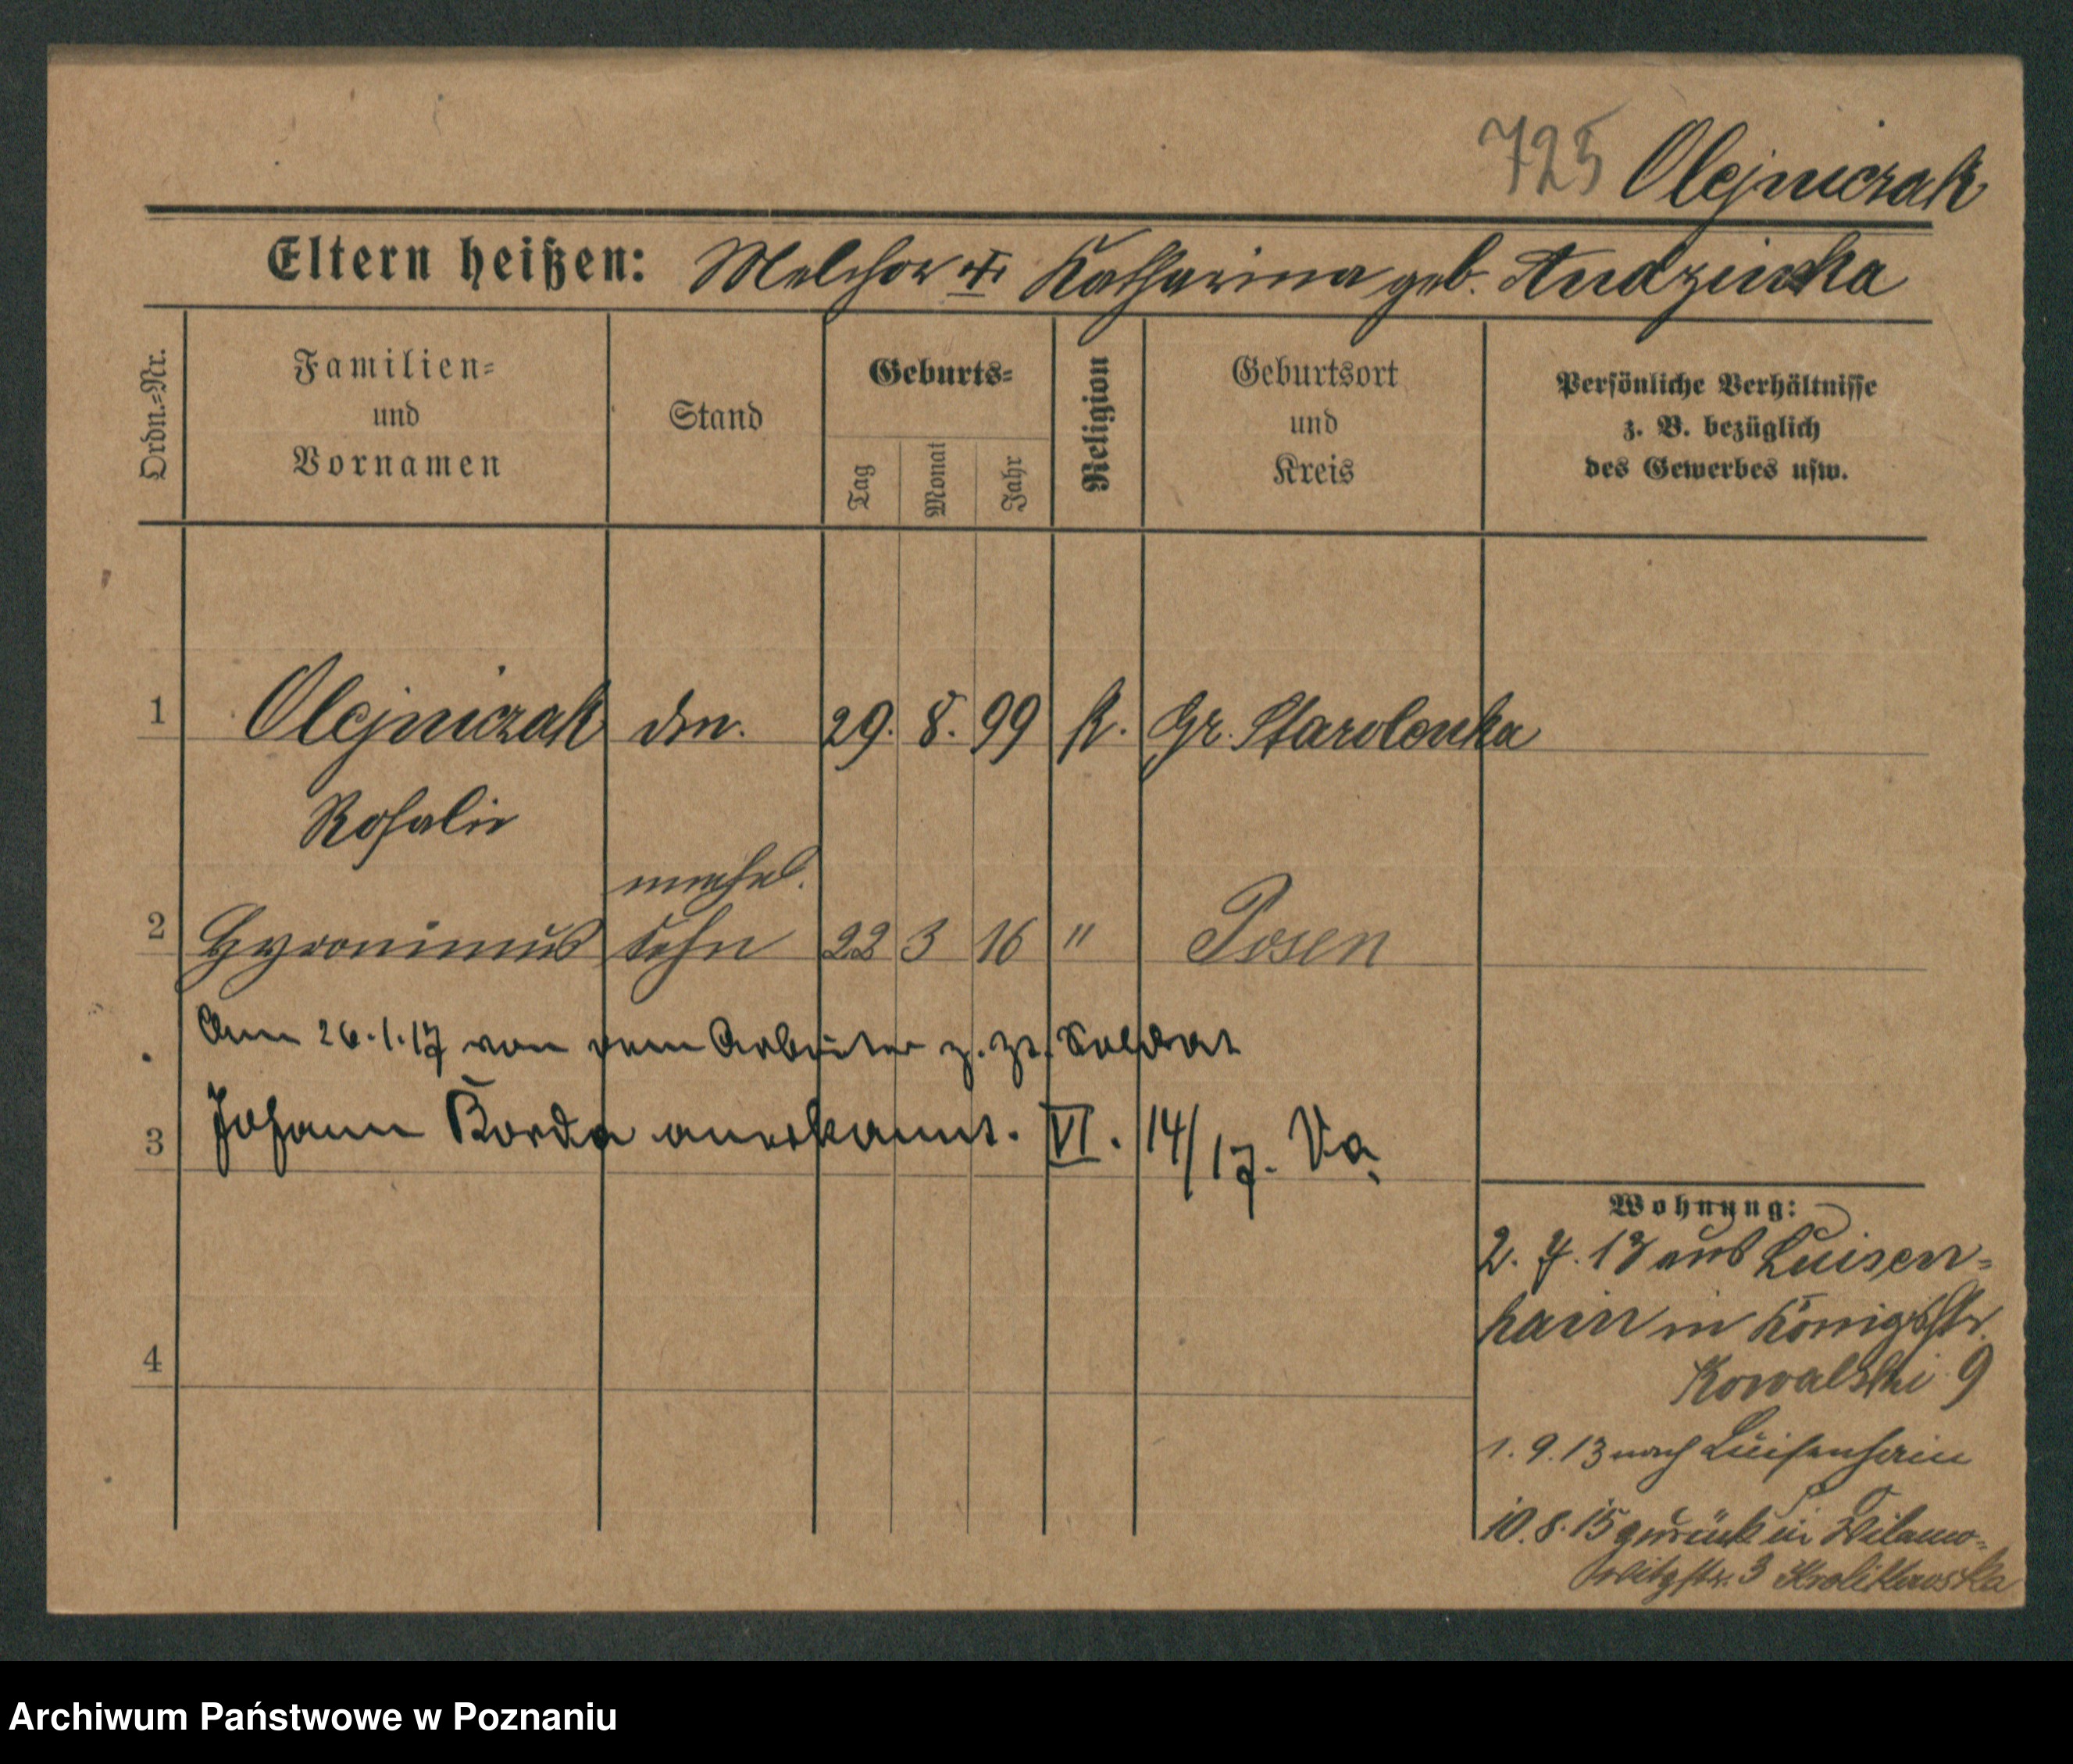 725 Olejniczak
Eltern heißen: Melchor u. Katharina geb. Andzinska
Ordn.=Nr.
Familien=
und
Vornamen
Stand
Geburts=
Tag
Monat
Jahr
Religion
Geburtsort
und
Kreis
Persönliche Verhältnisse
z. B. bezüglich
des Gewerbes usw.
1 Olejniczak 29. 8. 99 k. Gr. Starolenka
Rosalie
unehel.
2 Hyronimus Sohn 22 3 16 " Posen
Am 26.1.17 von dem Arbeiter z. Zt. Soldat
3 Johann Borda anerkannt. VI. 14/17.
4
Wohnung:
2. 7. 13 aus Luisen-
hain in Königsstr.
Kowalski 9
1. 9. 13 nach Luisenhain
10. 8. 15 zurück in Wilamo-
witzstr. 3 Krolikowska
Archiwum Państwowe w Poznaniu